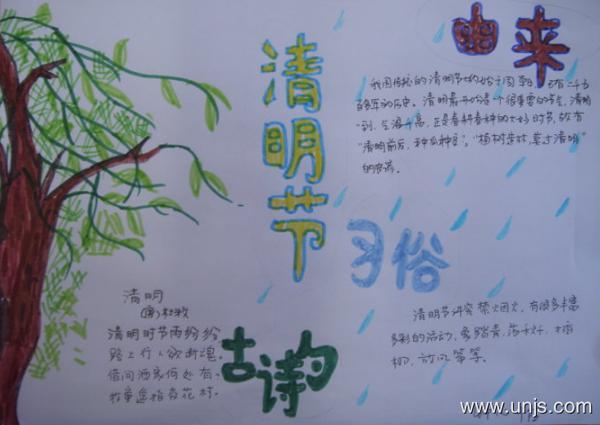 由来
我国传统的清明节大约始于周朝,已有二千五
百多年的历史。清明最开始是一个很重要的节气,清明
一到,气温升高,正是春耕春种的大好时节,故有
"清明前后,种瓜种豆"。"植树造林,莫过清明"
的农谚。
清明节
习俗
清明节讲究禁烟火,有很多丰富
多彩的活动,象踏青、荡秋千、
柳、放风筝等。
清明
(唐)杜牧
清明时节雨纷纷
路上行人欲断魂
借问酒家何处有,
牧童遥指杏花村。
古诗
www.unjs.com